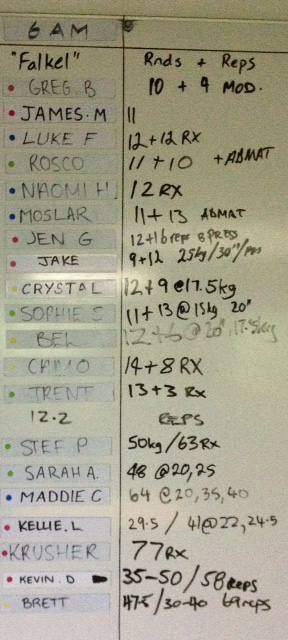 6 AM
"Falkel" Rnds + Reps
GREG. B 10 + 9 MOD.
JAMES. M 11
LUKE F 12+12 RX
ROSCO 11 + 10 + ABMAT
NAOMI H 12 RX
MOSLAR 11 + 13 ABMAT
JEN G 12+16 reps BPRESS
JAKE 9+12 25kg/30"/
CRYSTAL 12 + 9 @ 17.5kg
SOPHIE S 11 + 13 @ 15kg 20"
BEL 12+6 @ 20" 17.5kg
14 + 8 RX
TRENT 13 + 3 RX
12.2 REPS
STEF P 50kg/63RX
SARAH A. 48 @20,25
MADDIE C 64 @ 20, 35, 40
KELLIE. L 29.5 / 41@22,24.5
KRUSHER 77 RX
KEVIN. D 35-50 / 58 REPS
BRETT 47.5/30-40 69 reps